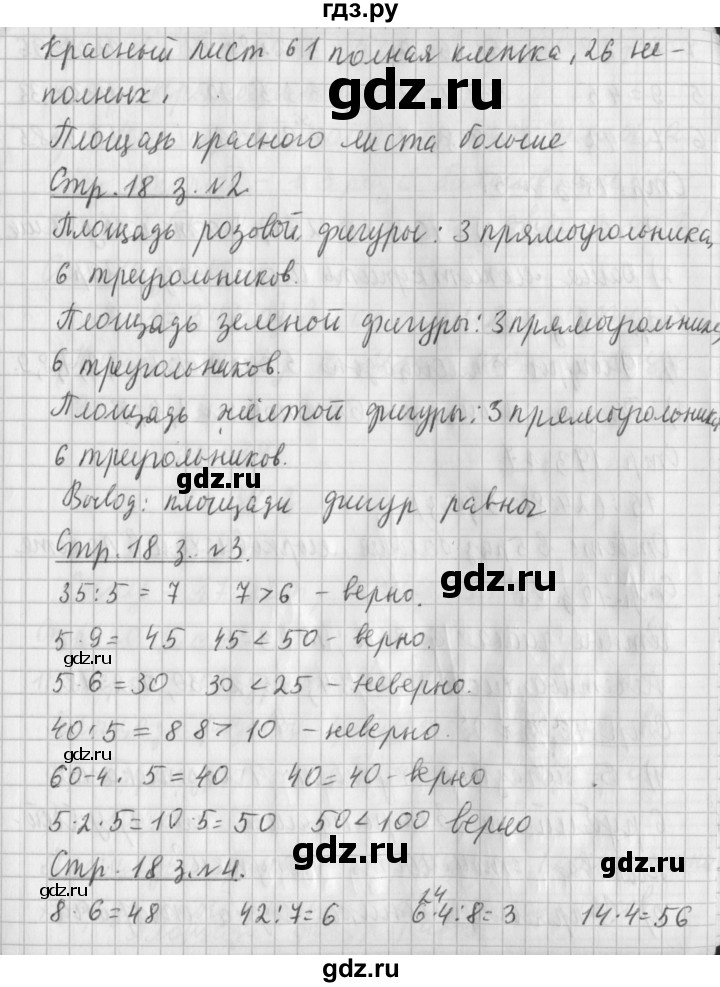 гдз.ру
Красный лист 61 полная клетка, 26 не-
полных.
gdz.ru
Площадь красного листа больше
Стр. 18 з. №2.
gdz.ru
Площадь розовой фигуры: 3 прямоугольника,
6 треугольников.
Площадь зеленой фигуры: 3 прямоугольника,
gdz.ru
6 треугольников.
Площадь жёлтой фигуры: 3 прямоугольника,
6 треугольников.
gdz.ru
Вывод: площади фигур равны
Стр. 18 з. №3.
gdz.ru
35:5 = 7 7>6 - верно.
5·9= 45 45<50- верно.
gdz.ru
5·6=30 30<25 - неверно.
40:5=8 8>10 - неверно.
gdz.ru
60-4·5=40 40=40- верно
5·2·5=10·5=50 50<100 верно
gdz.ru gdz.ru
Стр. 18 з. №4.
gdz.ru
8·6=48 42:7=6 6·4:8=3 14·4=56
24
gdz.ru
gdz.ru